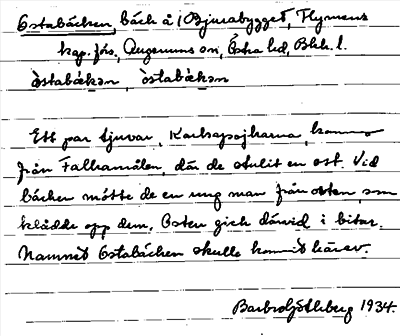 Ostabäcken, bäck å (Bjurabygget, Flymens
kap.förs, Augerums sn, Östra hd, Blek. l.
òstabækən, òstabækən
Ett par tjuvar, Karlsapojkarna, kommo
från Falkamålen, där de stulit en ost. Vid
bäcken mötte de en ung man från orten, som
klådde opp dem. Osten gick därvid i bitar.
Namnet Ostabäcken skulle kommit härav.
1934.